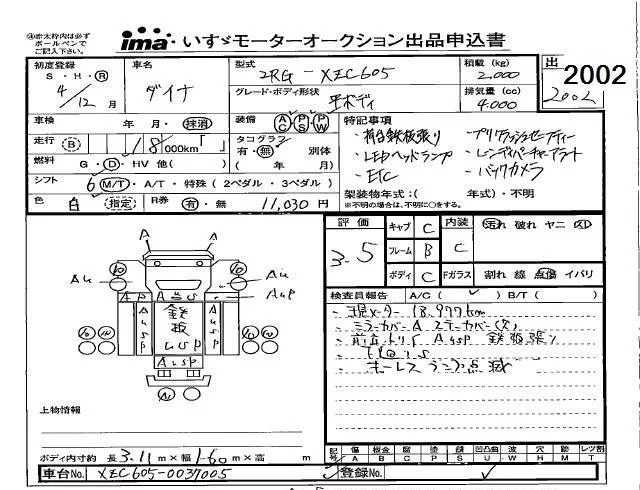 ㊟赤太枠内は必ず
ボールペンで
ご記入下さい。
ima・いすゞモーターオークション出品申込書
初度登録 車名 型式 積載 (kg) 出
S・H・R ダイナ 2RG-XZC605 2,000 2002
4/12月 グレード・ボディ形状 平ボディ 排気量 (cc) 4000 2002
車検 年 月・抹消 装備 AC PS PW 特記事項
走行 B 18,000km「 」 タコグラフ 有・無 別体 ・荷台鉄板張り ・プリクラッシュセーフティー
燃料 G・D・HV 他( ) ( 年 月) ・LEDヘッドランプ ・レーンディパーチャーアラート
シフト 6 M/T・A/T・特殊(2ペダル・3ペダル) ・ETC ・バックカメラ
架装物年式:( 年式)・不明
色 白 (指定) R券 有・無 11,030円 ※不明の場合は、不明に○をする。
評価 キャブ C 内装 汚れ 破れ ヤニ スレ
3.5 フレーム B C
ボディ C Fガラス 割れ 線 点傷 イバリ
検査員報告 A/C( ✓ ) B/T( )
・現メーター 18,977km
・ミラーカバーA ステーカバー(欠)
・荷台 AUSP 鉄板張り
・キーレス 点滅
A A
AU AU
AP AUS AUP
AUSP 鉄板 USP AUSP
AUSP
上物情報
ボディ内寸約 長 3.11m×幅 1.60m×高 m
記号 傷 板金 腐 塗 錆 凹凸曲 波 穴 跡 レンズ割
A B C P S U・W H M T
車台No. XZC605-0037005 登録No.